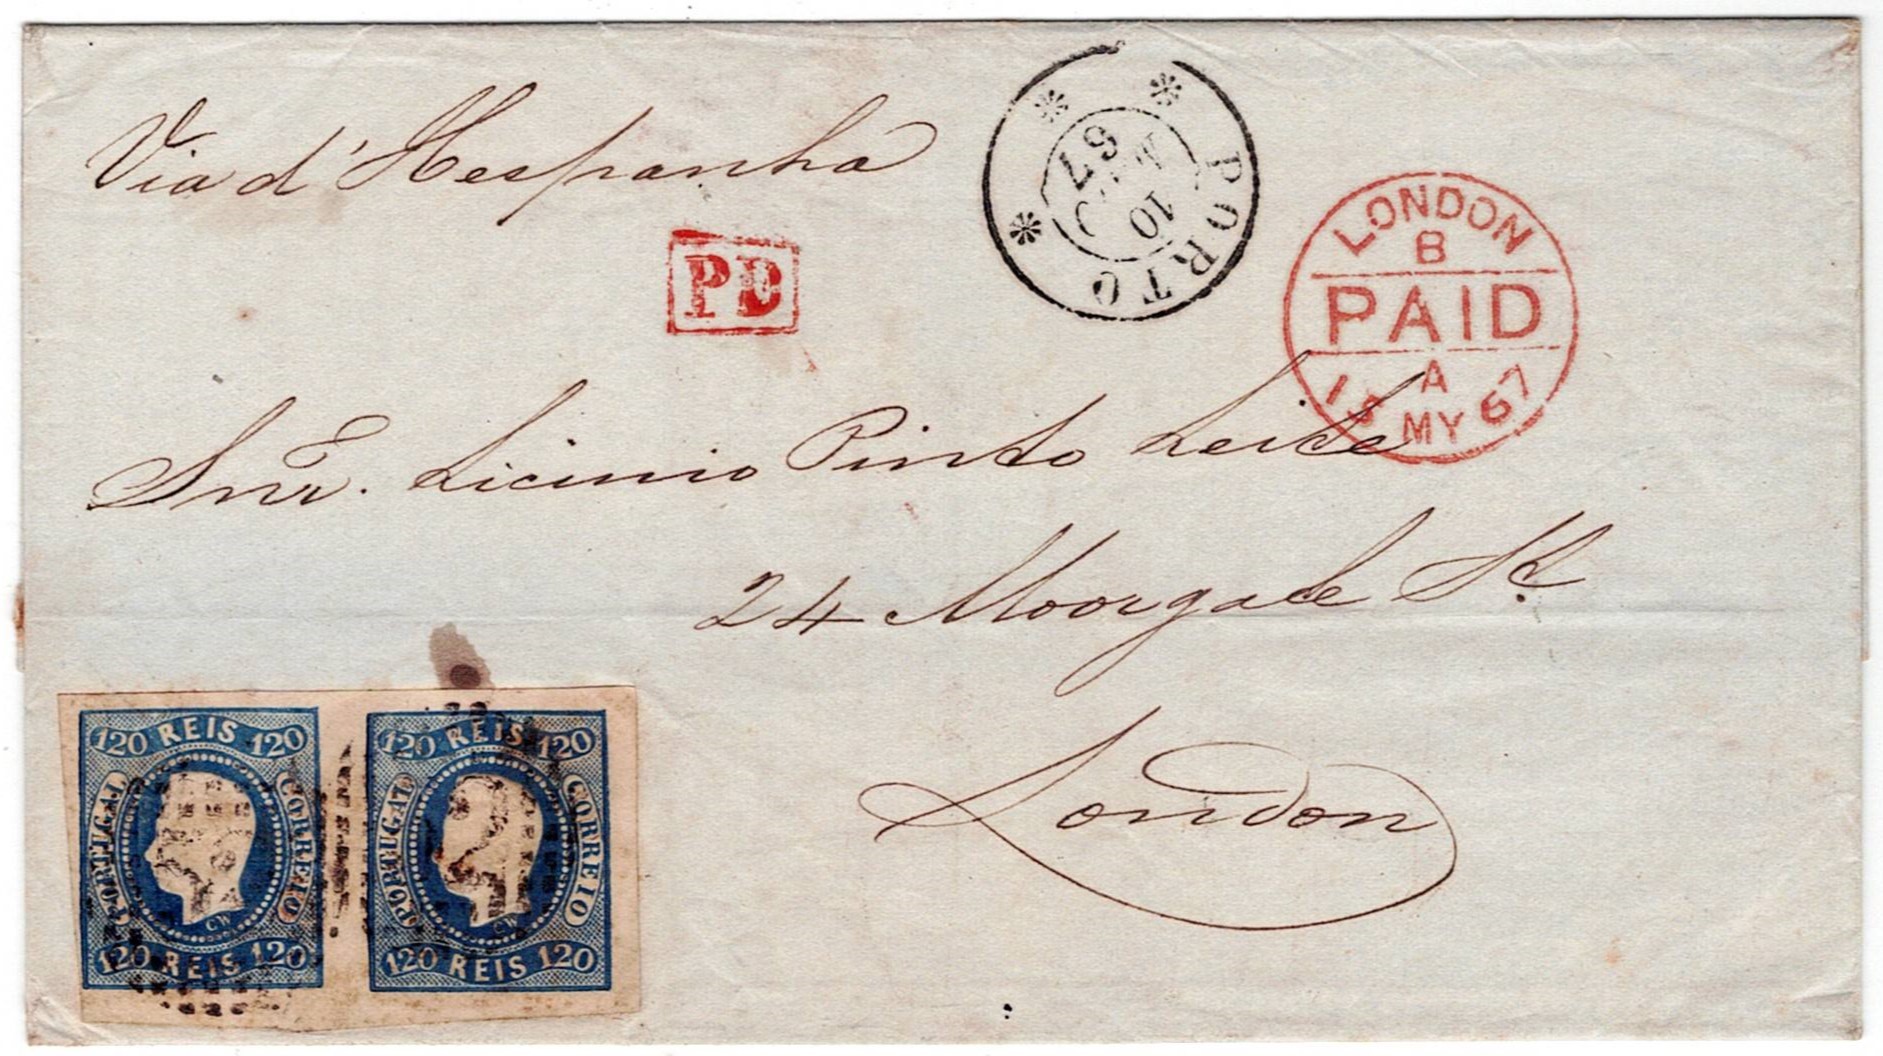 Via d'Hespanha
PORTO
10
MAIO
67
LONDON
B
PAID
A
15 MY 67
PD
Snr. Licinio Pinto Leite
24 Moorgate St.
London
120 REIS 120
PORTUGAL
CORREIO
CW
120 REIS 120
120 REIS 120
PORTUGAL
CORREIO
CW
120 REIS 120